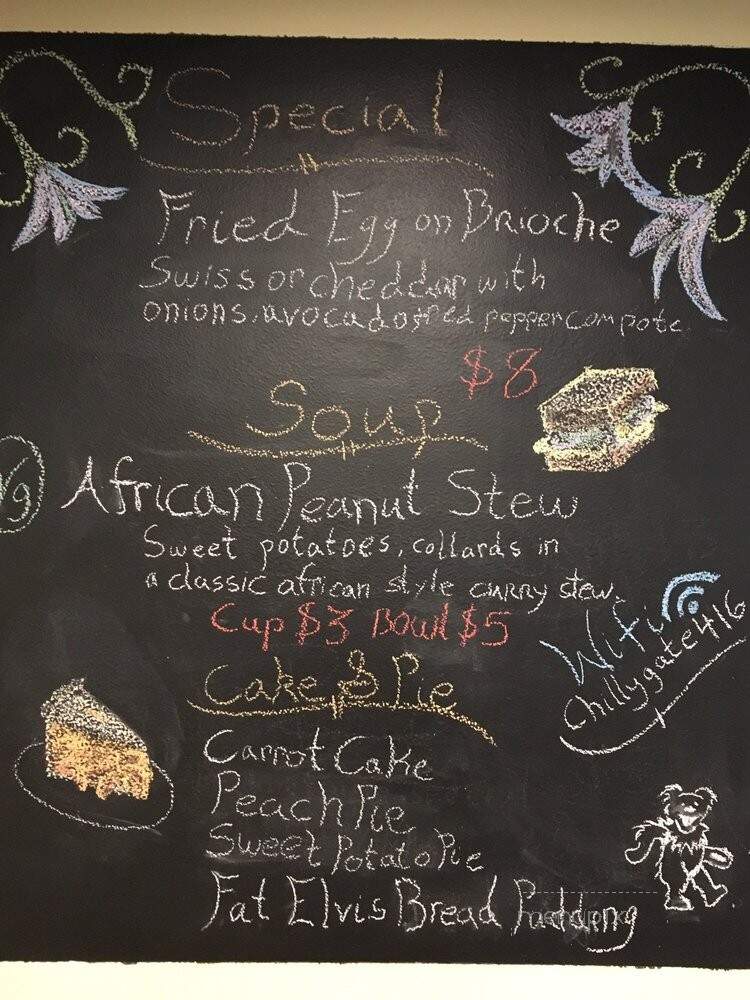 Special
Fried Egg on Brioche
Swiss or cheddar with
onions, avocado, red pepper compote
$8
Soup
Vg
African Peanut Stew
Sweet potatoes, collards in
a classic african style curry stew.
Cup $3 Bowl $5
Wifi
Chillygate416
Cake & Pie
Carrot Cake
Peach Pie
Sweet Potato Pie
Fat Elvis Bread Pudding